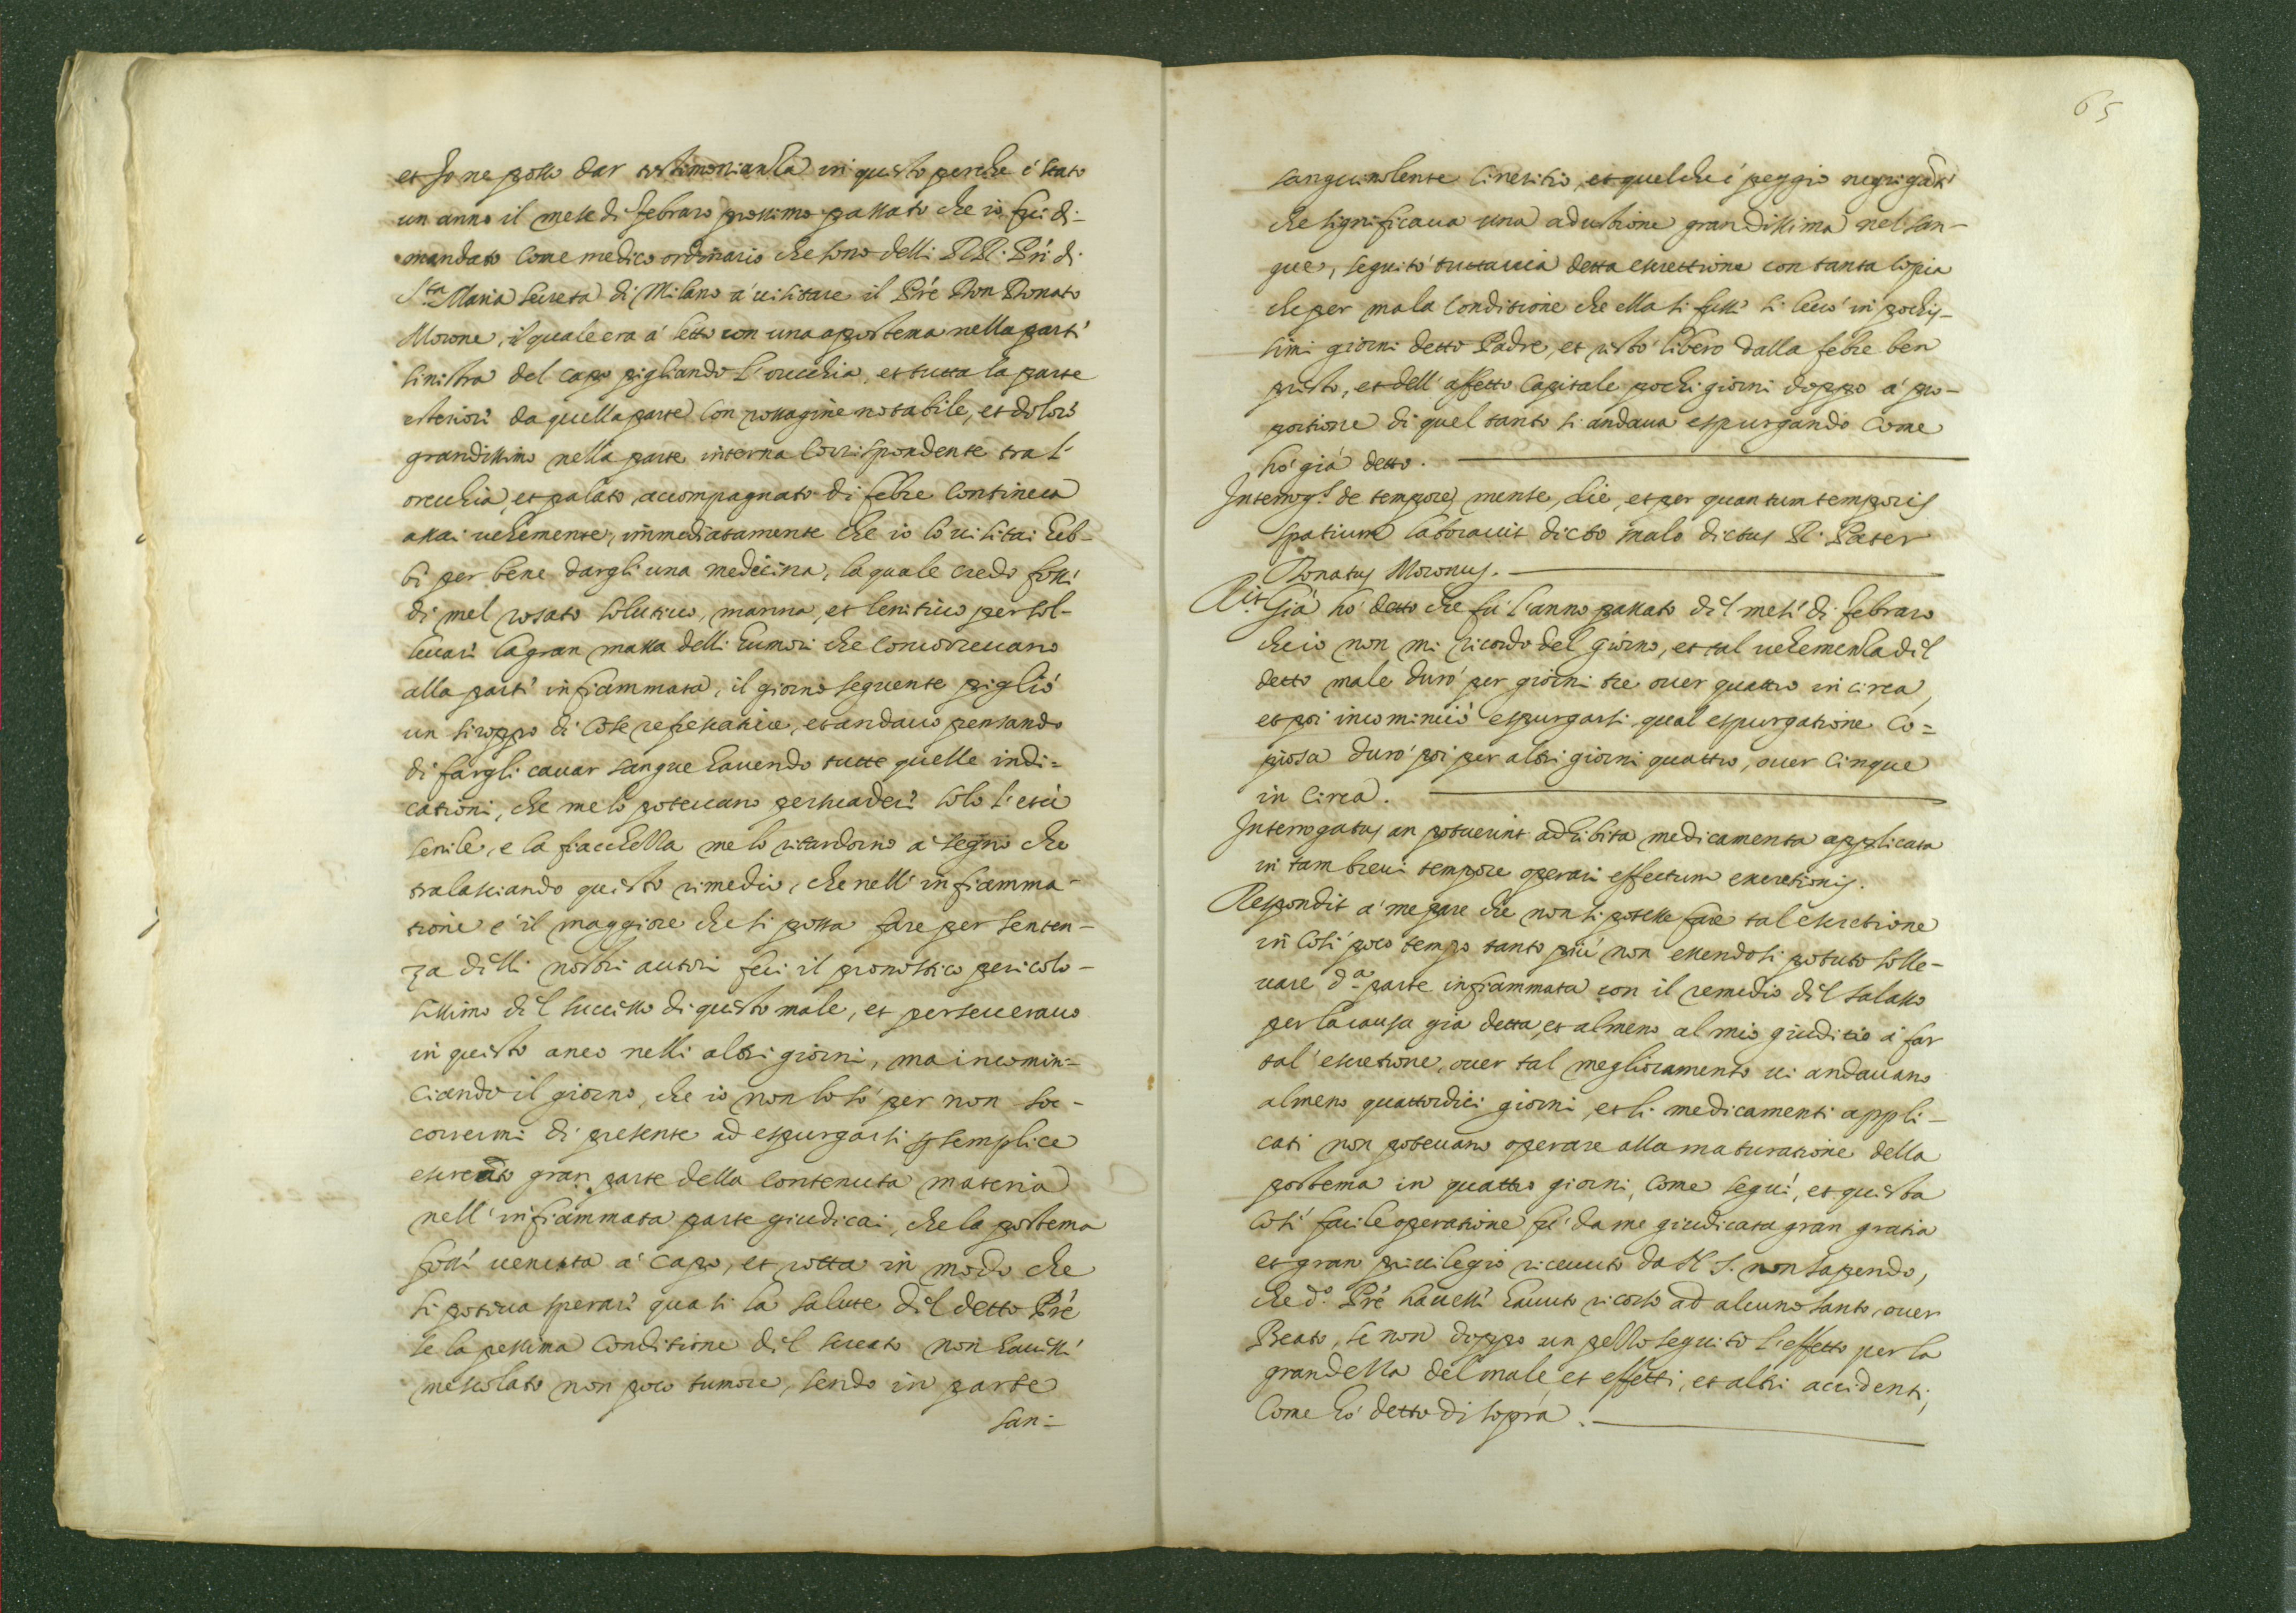 et Io ne posso dar testimonianza in questo perche é stato
un anno il mese di febraro prossimo passato che io fui di-
mandato come medico ordinario che sono delli RR. Pri di
Sta Maria Secreta di Milano a' uisitare il Pre Don Donato
Morone, il quale era á letto con una apostema nella parti
sinistra del capo pigliando l'orecchia, et tutta la parte
esteriori da quella parte con rossagine notabile, et dolori
grandissimo nella parte interna corrispondente tra l'
orecchia, et palato, accompagnato di febre continua
assai uehemente, immediatamente che io lo uisitai heb-
bi per bene dargli una medecina, la quale credo fossi
di mel rosato solutiuo, manna, et lenitiuo per sol-
leuari la gran massa delli humori che concorreuano
alla parti infiammata, il giorno seguente piglió
un siroppo di cose refrescatiue, et andauo pensando
di fargli cauar sangue hauendo tutte quelle indi=
cationi, che me lo poteuano persuaderi solo l'etá
senile, e la fiacchezza me lo ritardorno á segno che
tralasciando questo rimedio, che nell' infiamma-
tione e' il maggiore che si possa fare per senten-
za dilli nostri autori feci il pronostico pericolo-
sissimo dil successo di questo male, et perseuerauo
in questo anco nelli altri giorni, ma incomin=
ciando il giorno, che io non lo só per non soc-
corrermi di presente ad espurgarsi semplice
escreato gran parte della contenuta materia
nell' infiammata parte giudicai, che la postema
fossi uenuta a' capo, et rotta in modo che
si poteua sperari quasi la salute dil detto Pré
se la pessima conditione dil screato non hauessi
mescolato non poco tumore, sendo in parte
san-
65
sanguinolente cineritio, et quel che é peggio
che significaua una adustione grandissima nel san-
gue, seguitó tuttauia detta escrettione con tanta copia
che per mala conditione che ella si fussi si leuó in pochis-
simi giorni detto Padre, et restó libero dalla febre ben
presto, et dell' affetto capitale pochi giorni doppo á pro-
portione di quel tanto si andaua espurgando come
hó giá detto.
Interrogs. de tempore, mense, die, et per quantum temporis
spatium laborauit dicto malo dictus R. Pater
Donatus Moronus.
Rit. Giá hó detto che fú l'anno passato dil mesi di febraro
che io non mi ricordo del giorno, et tal uehemenza dil
detto male duró per giorni tre ouer quattro in circa,
et poi incominció espurgarsi, qual espurgatione co=
piosa duró poi per altri giorni quattro, ouer cinque
in circa.
Interrogatus an potuerint adhibita medicamenta applicata
in tam breui tempore operari effectum excretionis.
Respondit a' me pare che non si potesse fare tal escretione
in cosí poco tempo tanto piú non essendosi potuto solle-
uare d.a parte infiammata con il remedio dil salasso
per la causa giá detta, et almeno al mio giuditio á far
tal' escretione, ouer tal meglioramento ui andauano
almeno quattordici giorni, et li medicamenti appli-
cati non poteuano operare alla maturatione della
postema in quattro giorni, come seguí, et questa
cosí facile operatione fú da me giudicata gran gratia
et gran priuilegio riceuuto da N. S. non sapendo,
che d.o Pré hauessi hauuto ricorso ad alcuno santo, ouer
Beato, se non doppo un pezzo seguito l'effetto per la
grandezza del male et effetti, et altri accidenti,
come hó detto di sopra.